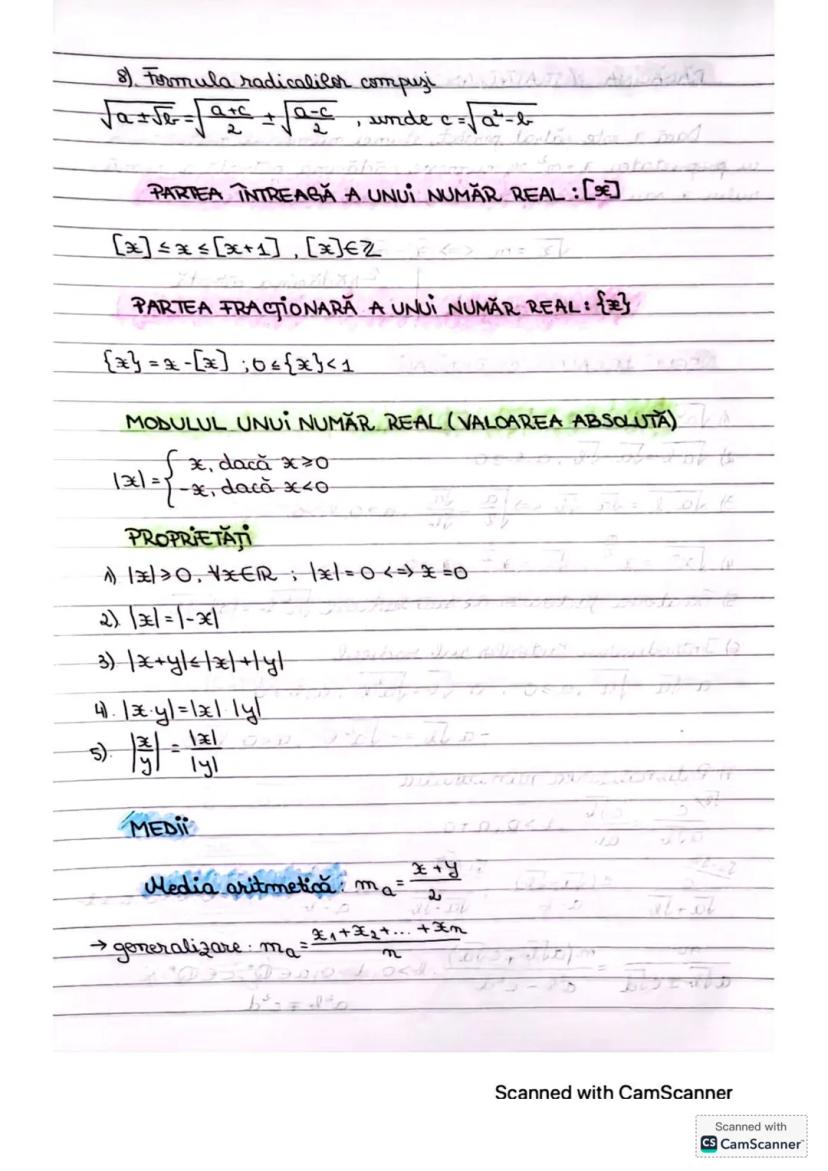 8). Formula radicalilor compuși
√(a±√b) = √((a+c)/2) ± √((a-c)/2) , unde c = √(a²-b)
PARTEA ÎNTREAGĂ A UNUI NUMĂR REAL : [x]
[x] ≤ x ≤ [x+1] , [x]∈ℤ
PARTEA FRACȚIONARĂ A UNUI NUMĂR REAL : {x}
{x} = x-[x] ; 0 ≤ {x} < 1
MODULUL UNUI NUMĂR REAL (VALOAREA ABSOLUTĂ)
|x| = { x, dacă x ≥ 0
-x, dacă x < 0
PROPRIETĂȚI
1) |x| ≥ 0, ∀x∈ℝ ; |x| = 0 <=> x = 0
2). |x| = |-x|
3) |x+y| ≤ |x|+|y|
4). |x·y| = |x|·|y|
5). |x/y| = |x|/|y|
MEDII
Media aritmetică : mₐ = (x+y)/2
→ generalizare : mₐ = (x₁+x₂+...+xₙ)/n
Scanned with CamScanner
Scanned with
CS CamScanner